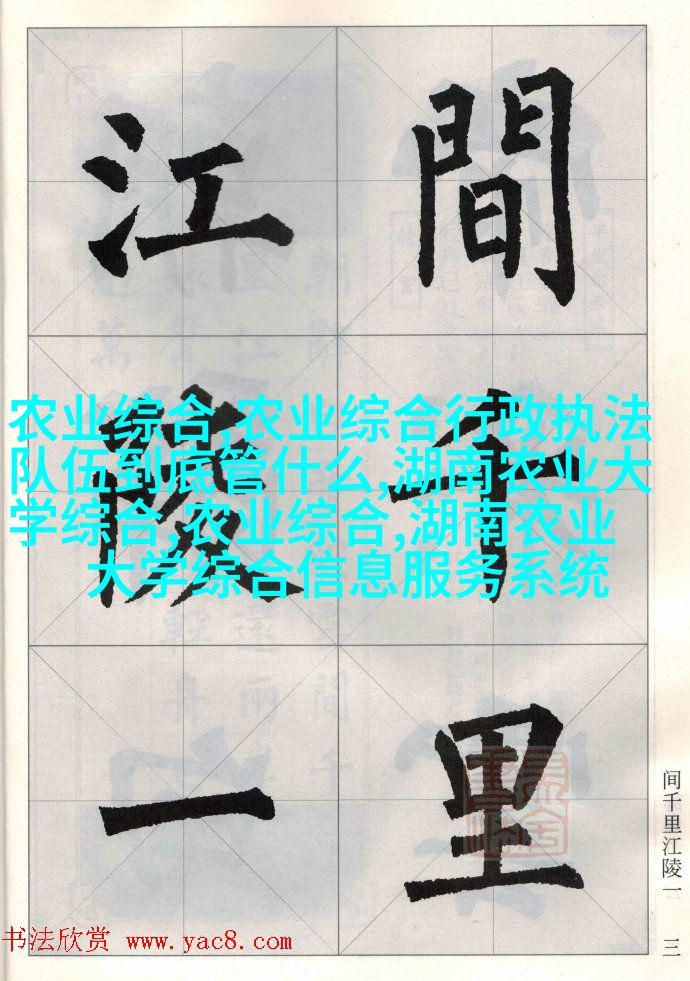 間
千
里
江
陵
一
农业综合,农业综合行政执法
队伍到底管什么,湖南农业大
学综合,农业综合,湖南农业
大学综合信息服务系统
间千里江陵一
三
书法欣赏 www.yac8.com